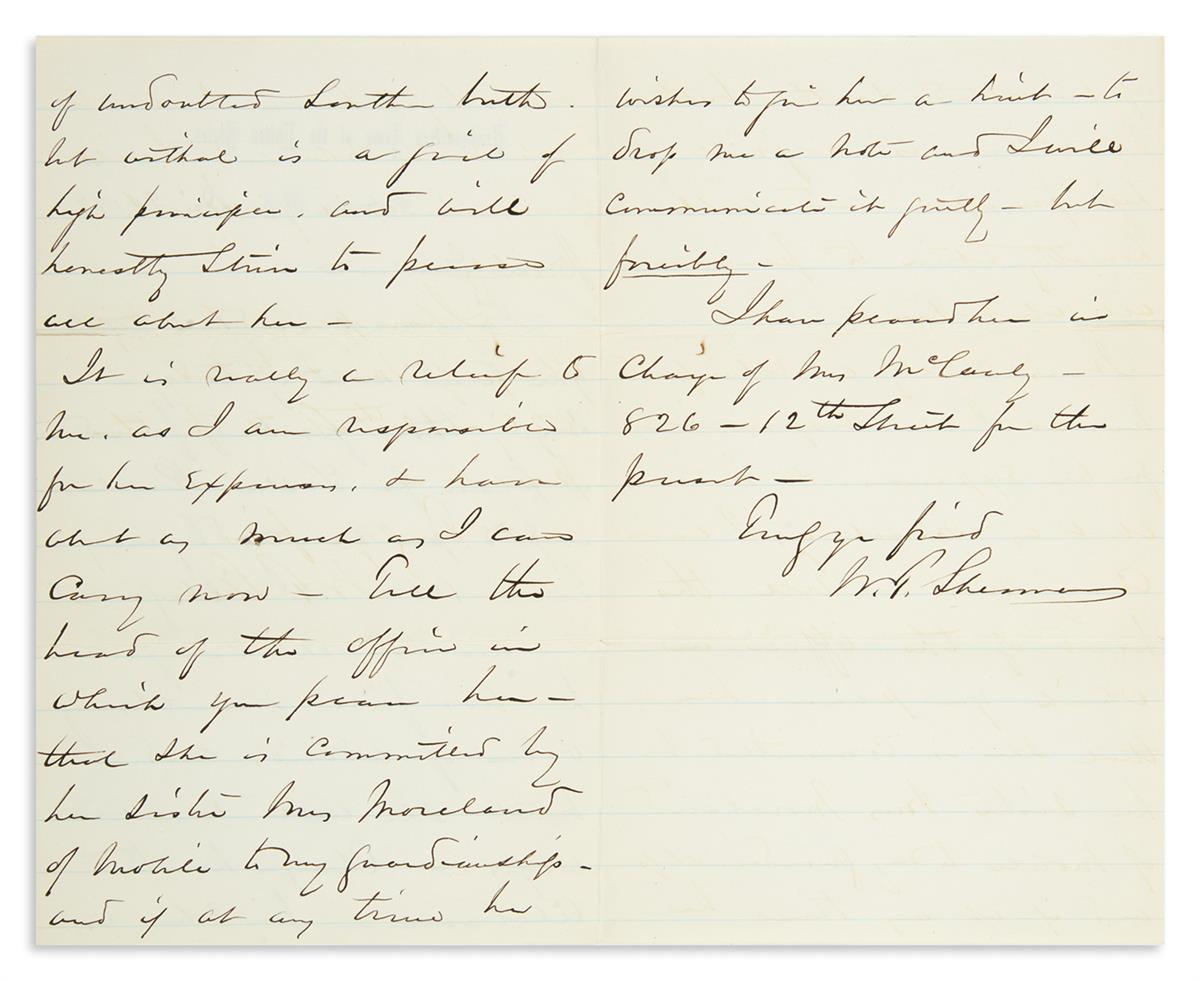 of undoubted Southern birth.
but withal is a girl of
high principle. and will
honestly Strive to please
all about her –
It is really a relief to
me. as I am responsible
for her Expenses. & have
about as much as I can
Carry now – Tell the
head of the office in
which you place her –
that She is Committed by
her Sister Mrs Moreland
of Mobile to my guardianship –
and if at any time he
wishes to give her a hint – to
drop me a note and I will
communicate it gently – but
forcibly –
I have placed her in
Charge of Mrs McCauly –
826 – 12th Street for the
present –
Truly yr friend
W. T. Sherman